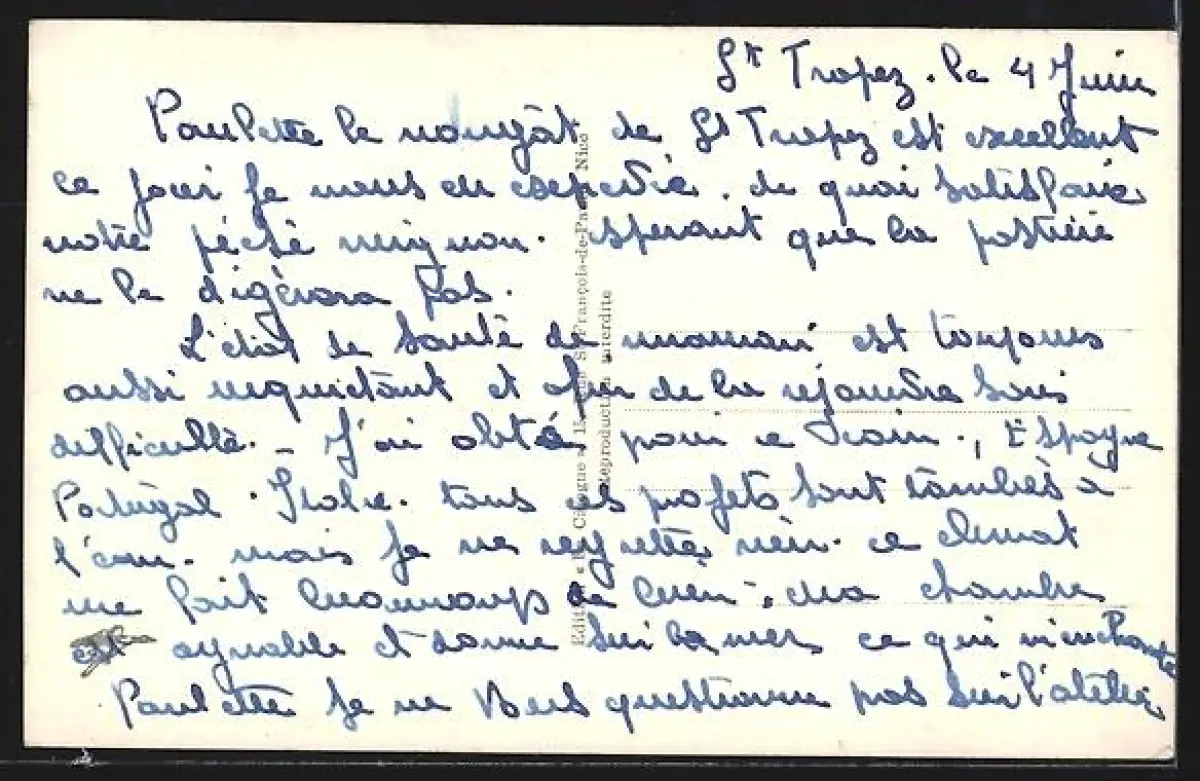 St Tropez. le 4 Juin
Paulette le nougât de St Tropez est excellent
ce jour je vous en expedie. de quoi satisfaire
votre péché mignon. esperant que la postière
ne le digèrera pas.
L'état de santé de maman est toujours
aussi inquietant et afin de la rejoindre sans
difficulté. - J'ai opté pour ce coin., Espagne
Portugal. Italie. tous ces projets sont tombés à
l'eau. mais je ne regrette rien. ce climat
me fait beaucoup de bien., Ma chambre
est agréable et donne sur la mer ce qui m'enchante
Paulette je ne vous questionne pas sur l'atelier
Editions « La Cigogne » St-François-de-Paule Nice
Reproduction interdite